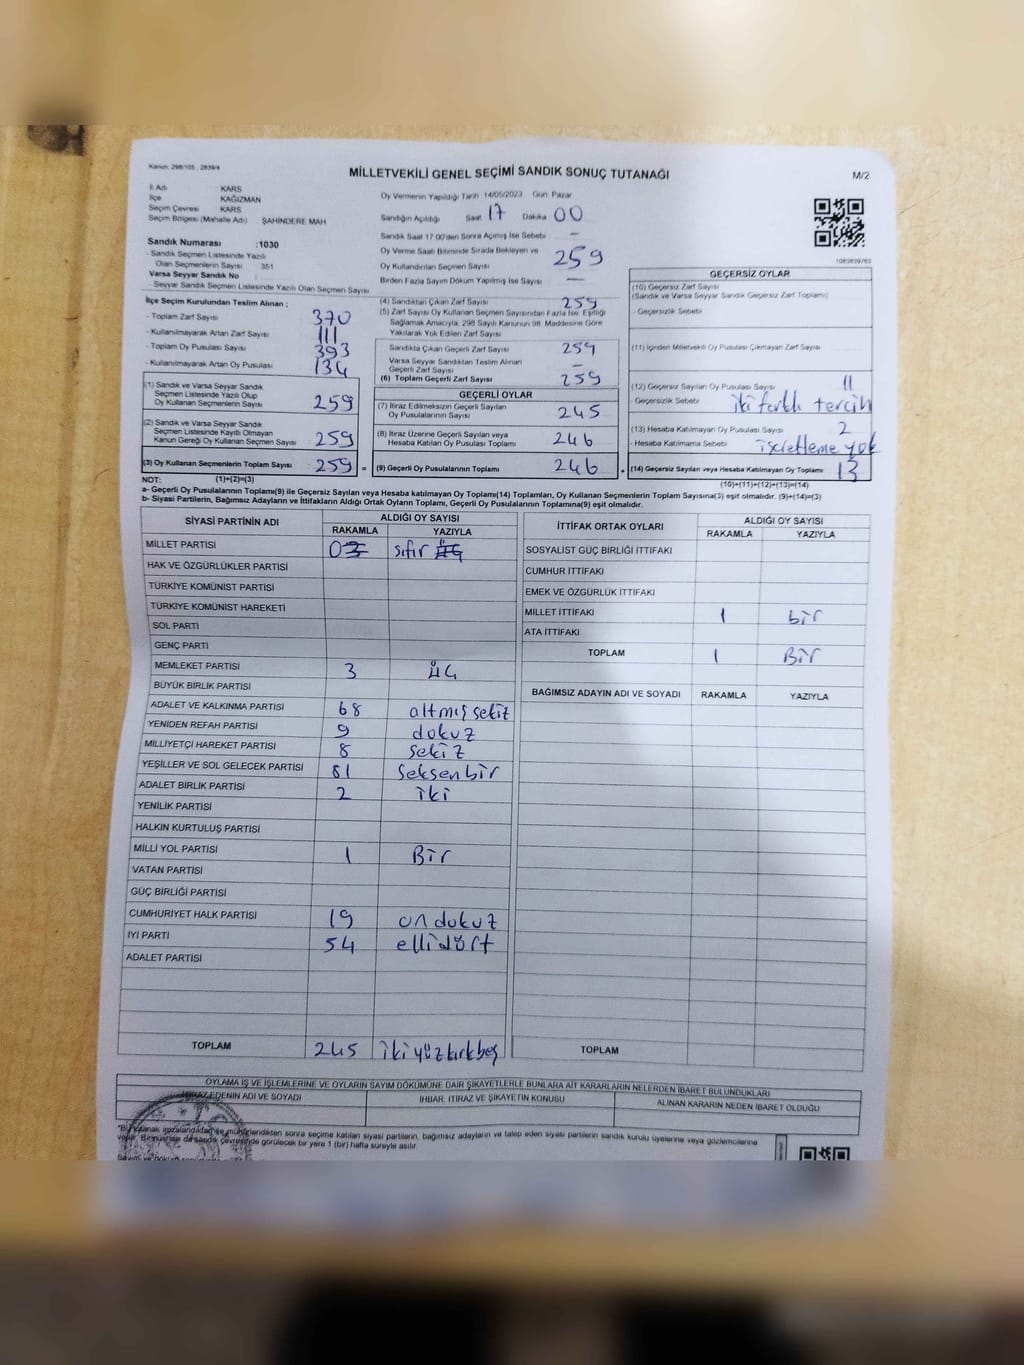 Kanun: 298/105 , 2839/4
MİLLETVEKİLİ GENEL SEÇİMİ SANDIK SONUÇ TUTANAĞI
M/2
İl Adı KARS
İlçe KAĞIZMAN
Seçim Çevresi KARS
Seçim Bölgesi (Mahalle Adı) ŞAHİNDERE MAH
Sandık Numarası :1030
- Sandık Seçmen Listesinde Yazılı
Olan Seçmenlerin Sayısı 351
Varsa Seyyar Sandık No :
- Seyyar Sandık Seçmen Listesinde Yazılı Olan Seçmen Sayısı
İlçe Seçim Kurulundan Teslim Alınan ;
- Toplam Zarf Sayısı 370
- Kullanılmayarak Artan Zarf Sayısı 111
- Toplam Oy Pusulası Sayısı 393
- Kullanılmayarak Artan Oy Pusulası 134
(1) Sandık ve Varsa Seyyar Sandık
Seçmen Listesinde Yazılı Olup
Oy Kullanan Seçmenlerin Sayısı 259
(2) Sandık ve Varsa Seyyar Sandık
Seçmen Listesinde Kayıtlı Olmayan
Kanun Gereği Oy Kullanan Seçmen Sayısı 259
(3) Oy Kullanan Seçmenlerin Toplam Sayısı 259 =
Oy Vermenin Yapıldığı Tarih 14/05/2023 Gün Pazar
Sandığın Açıldığı Saat 17 Dakika 00
Sandık Saat 17 00'den Sonra Açımış İse Sebebi –
Oy Verme Saati Bitiminde Sırada Bekleyen ve
Oy Kullandırılan Seçmen Sayısı 259
Birden Fazla Sayım Döküm Yapılmış İse Sayısı –
(4) Sandıktan Çıkan Zarf Sayısı 259
(5) Zarf Sayısı Oy Kullanan Seçmen Sayısından Fazla İse, Eşitliği
Sağlamak Amacıyla; 298 Sayılı Kanunun 98. Maddesine Göre
Yakılarak Yok Edilen Zarf Sayısı
Sandıkta Çıkan Geçerli Zarf Sayısı 259
Varsa Seyyar Sandıktan Teslim Alınan
Geçerli Zarf Sayısı –
(6) Toplam Geçerli Zarf Sayısı 259
GEÇERLİ OYLAR
(7) İtiraz Edilmeksizin Geçerli Sayılan
Oy Pusulalarının Sayısı 245
(8) İtiraz Üzerine Geçerli Sayılan veya
Hesaba Katılan Oy Pusulası Toplamı 246
(9) Geçerli Oy Pusulalarının Toplamı 246 +
1083839763
GEÇERSİZ OYLAR
(10) Geçersiz Zarf Sayısı
(Sandık ve Varsa Seyyar Sandık Geçersiz Zarf Toplamı)
- Geçersizlik Sebebi
(11) İçinden Milletvekili Oy Pusulası Çıkmayan Zarf Sayısı
(12) Geçersiz Sayılan Oy Pusulası Sayısı 11
- Geçersizlik Sebebi iki farklı tercih
(13) Hesaba Katılmayan Oy Pusulası Sayısı 2
- Hesaba Katılmama Sebebi işaretleme yok
(14) Geçersiz Sayılan veya Hesaba Katılmayan Oy Toplamı 13
NOT: (1)+(2)=(3)
(10)+(11)+(12)+(13)=(14)
a- Geçerli Oy Pusulalarının Toplamı(9) ile Geçersiz Sayılan veya Hesaba katılmayan Oy Toplamı(14) Toplamları, Oy Kullanan Seçmenlerin Toplam Sayısına(3) eşit olmalıdır. (9)+(14)=(3)
b- Siyasi Partilerin, Bağımsız Adayların ve İttifakların Aldığı Ortak Oyların Toplamı, Geçerli Oy Pusulalarının Toplamına(9) eşit olmalıdır.
SİYASİ PARTİNİN ADI ALDIĞI OY SAYISI
RAKAMLA YAZIYLA
MİLLET PARTİSİ 0 3 sıfır üç
HAK VE ÖZGÜRLÜKLER PARTİSİ
TÜRKİYE KOMÜNİST PARTİSİ
TÜRKİYE KOMÜNİST HAREKETİ
SOL PARTİ
GENÇ PARTİ
MEMLEKET PARTİSİ 3 üç
BÜYÜK BİRLİK PARTİSİ
ADALET VE KALKINMA PARTİSİ 68 altmış sekiz
YENİDEN REFAH PARTİSİ 9 dokuz
MİLLİYETÇİ HAREKET PARTİSİ 8 sekiz
YEŞİLLER VE SOL GELECEK PARTİSİ 81 seksen bir
ADALET BİRLİK PARTİSİ 2 iki
YENİLİK PARTİSİ
HALKIN KURTULUŞ PARTİSİ
MİLLİ YOL PARTİSİ 1 Bir
VATAN PARTİSİ
GÜÇ BİRLİĞİ PARTİSİ
CUMHURİYET HALK PARTİSİ 19 on dokuz
İYİ PARTİ 54 elli dört
ADALET PARTİSİ
TOPLAM 245 iki yüz kırk beş
İTTİFAK ORTAK OYLARI ALDIĞI OY SAYISI
RAKAMLA YAZIYLA
SOSYALİST GÜÇ BİRLİĞİ İTTİFAKI
CUMHUR İTTİFAKI
EMEK VE ÖZGÜRLÜK İTTİFAKI
MİLLET İTTİFAKI 1 bir
ATA İTTİFAKI
TOPLAM 1 Bir
BAĞIMSIZ ADAYIN ADI VE SOYADI RAKAMLA YAZIYLA
TOPLAM
OYLAMA İŞ VE İŞLEMLERİNE VE OYLARIN SAYIM DÖKÜMÜNE DAİR ŞİKAYETLERLE BUNLARA AİT KARARLARIN NELERDEN İBARET BULUNDUKLARI
İTİRAZ EDENİN ADI VE SOYADI İHBAR, İTİRAZ VE ŞİKAYETİN KONUSU ALINAN KARARIN NEDEN İBARET OLDUĞU
"Bu tutanak imzalandıktan ve mühürlendikten sonra seçime katılan siyasi partilerin, bağımsız adayların ve talep eden siyasi partilerin sandık kurulu üyelerine veya gözlemcilerine
verilir. Bir nüshası da seçim çevresinde görülecek bir yere 1 (bir) hafta süreyle asılır.